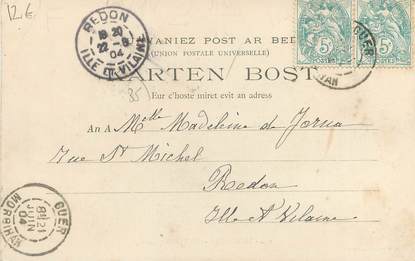 12 €
REDON
18 20
22 - 6
04
ILLE ET VILAINE
5 5
POSTES POSTES
GUER
WANIEZ POST AR BED
(UNION POSTALE UNIVERSELLE)
KARTEN BOST
Eur c'hoste miret evit an adress
35
An A Mlle Madeleine de Jorna
rue St Michel
Redon
Ille et Vilaine
GUER
8 21
JUIN
04
MORBIHAN